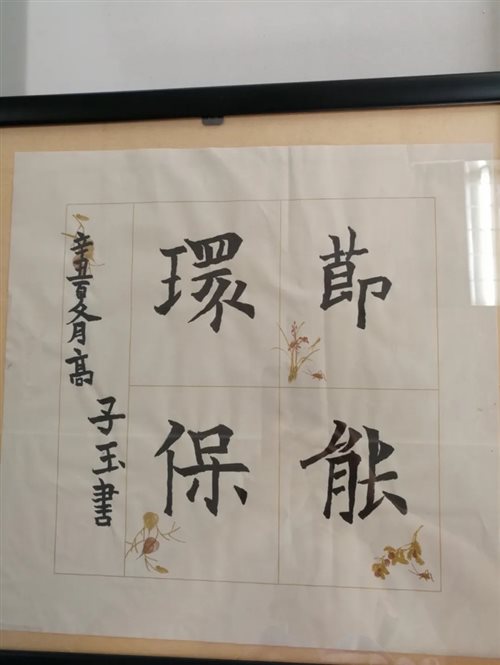 節能
環保
辛丑夏月高
子玉書